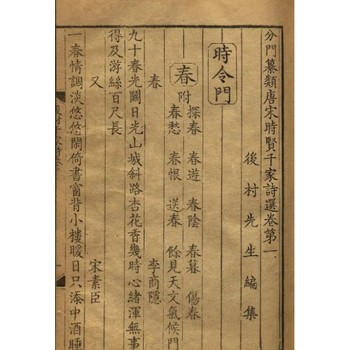 分門纂類唐宋時賢千家詩選卷第一
後村先生編集
時令門
春
附
探春 春遊 春陰 春暮 傷春
春愁 春恨 送春 餘見天文氣候門
春 李商隱
九十春光闘日光山城斜路杏花香幾時心緒渾無事
得及游絲百尺長
又 宋素臣
一春情調淡悠悠閑倚書窗背小樓暖日只添中酒睡